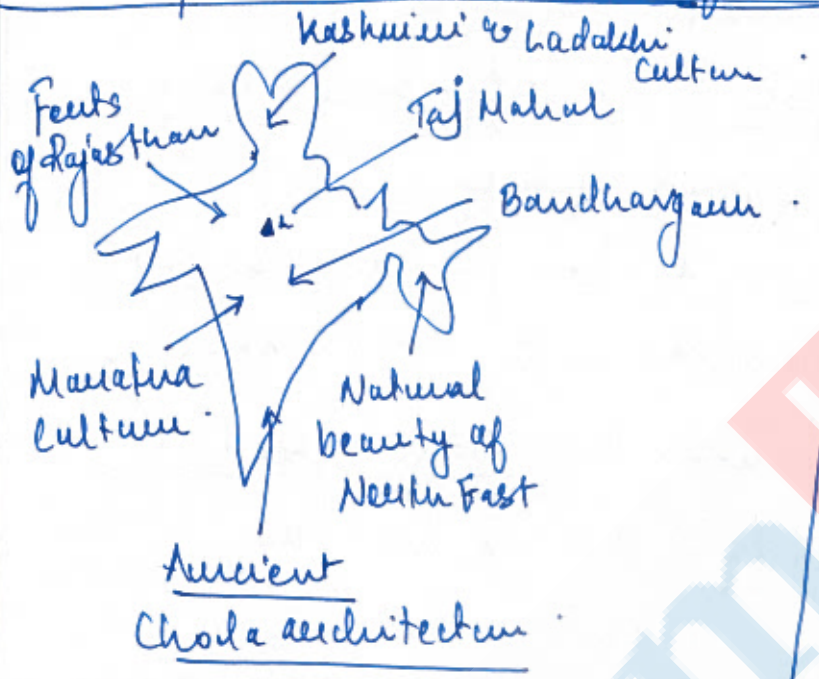 Kashmiri & Ladakhi
Culture
Forts
of Rajasthan
Taj Mahal
Bandhavgarh
Maratha
Culture
Natural
beauty of
North East
Ancient
Chola architecture